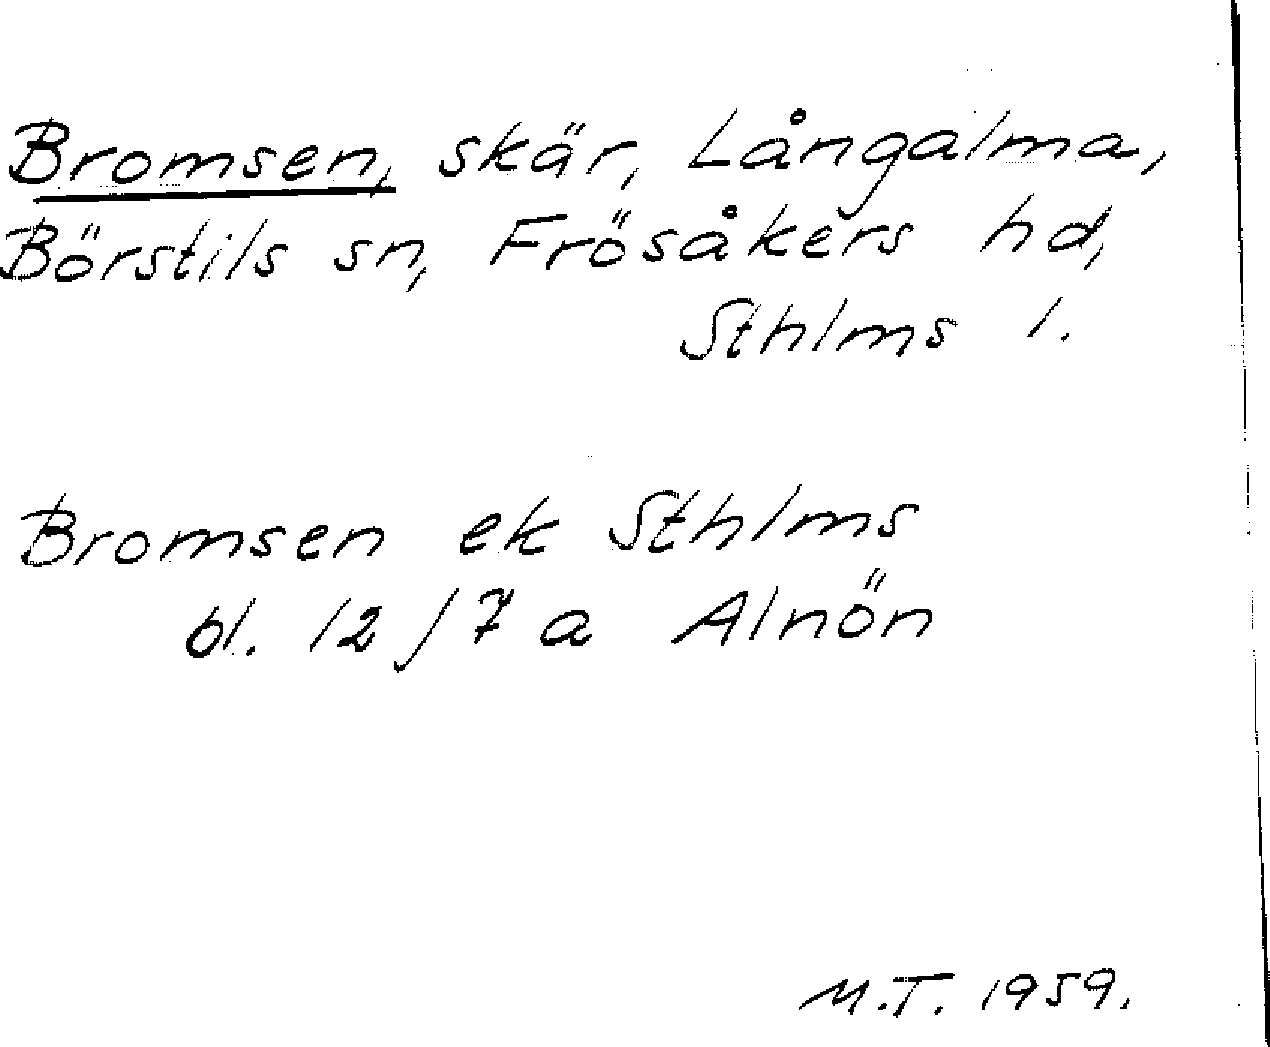 Bromsen, skär, Långalma,
Börstils sn, Frösåkers hd,
Sthlms l.
Bromsen ek Sthlms
bl. 12/7 a Alnön
M.T. 1959.